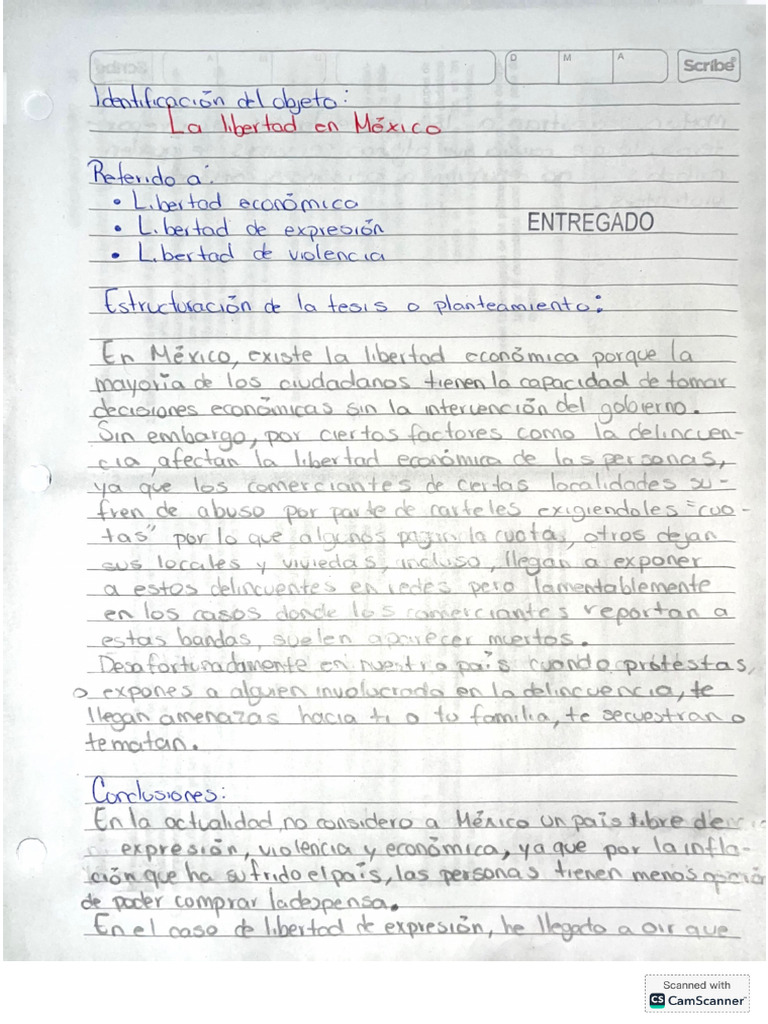 D M A Scribe
Identificación del objeto:
La libertad en México
Referido a:
• Libertad económica
• Libertad de expresión
ENTREGADO
• Libertad de violencia
Estructuración de la tesis o planteamiento:
En México, existe la libertad económica porque la
mayoría de los ciudadanos tienen la capacidad de tomar
decisiones económicas sin la intervención del gobierno.
Sin embargo, por ciertos factores como la delincuen-
cia, afectan la libertad económica de las personas,
ya que los comerciantes de ciertas localidades su-
fren de abuso por parte de carteles exigiendoles "cuo-
tas" por lo que algunos pagan la cuota, otros dejan
sus locales y viviedas, incluso, llegan a exponer
a estos delincuentes en redes pero lamentablemente
en los casos donde los comerciantes reportan a
estas bandas, suelen aparecer muertos.
Desafortunadamente en nuestro país cuando protestas,
o expones a alguien involucrado en la delincuencia, te
llegan amenazas hacia ti o tu familia, te secuestran o
te matan.
Conclusiones:
En la actualidad, no considero a México un país libre de
expresión, violencia y económica, ya que por la infla-
ción que ha sufrido el país, las personas tienen menos opció
de poder comprar la despensa.
En el caso de libertad de expresión, he llegado a oir que
Scanned with
CS CamScanner